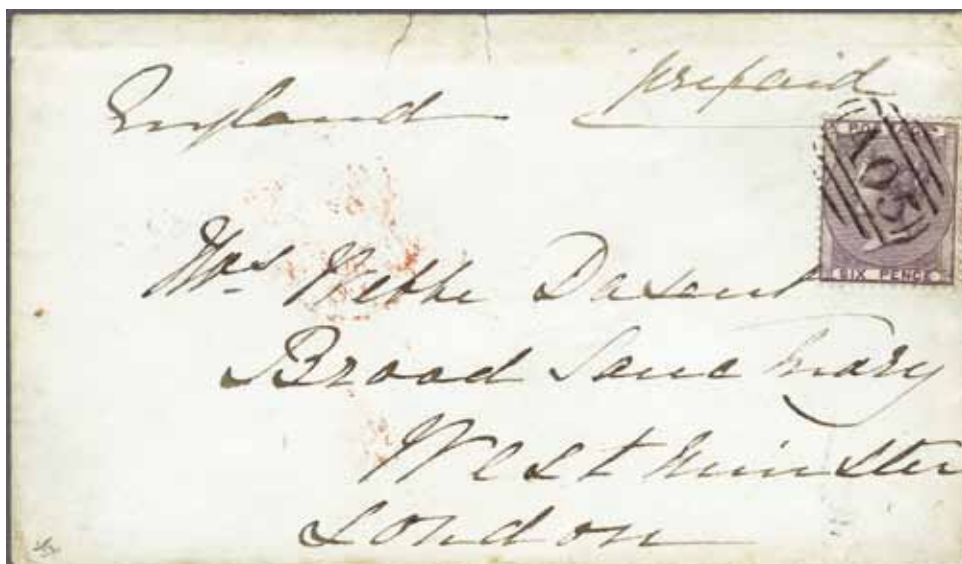 England prepaid
POSTAGE
A05
SIX PENCE
Mrs. Webbe Dasent
Broad Sanctuary
Westminster
London